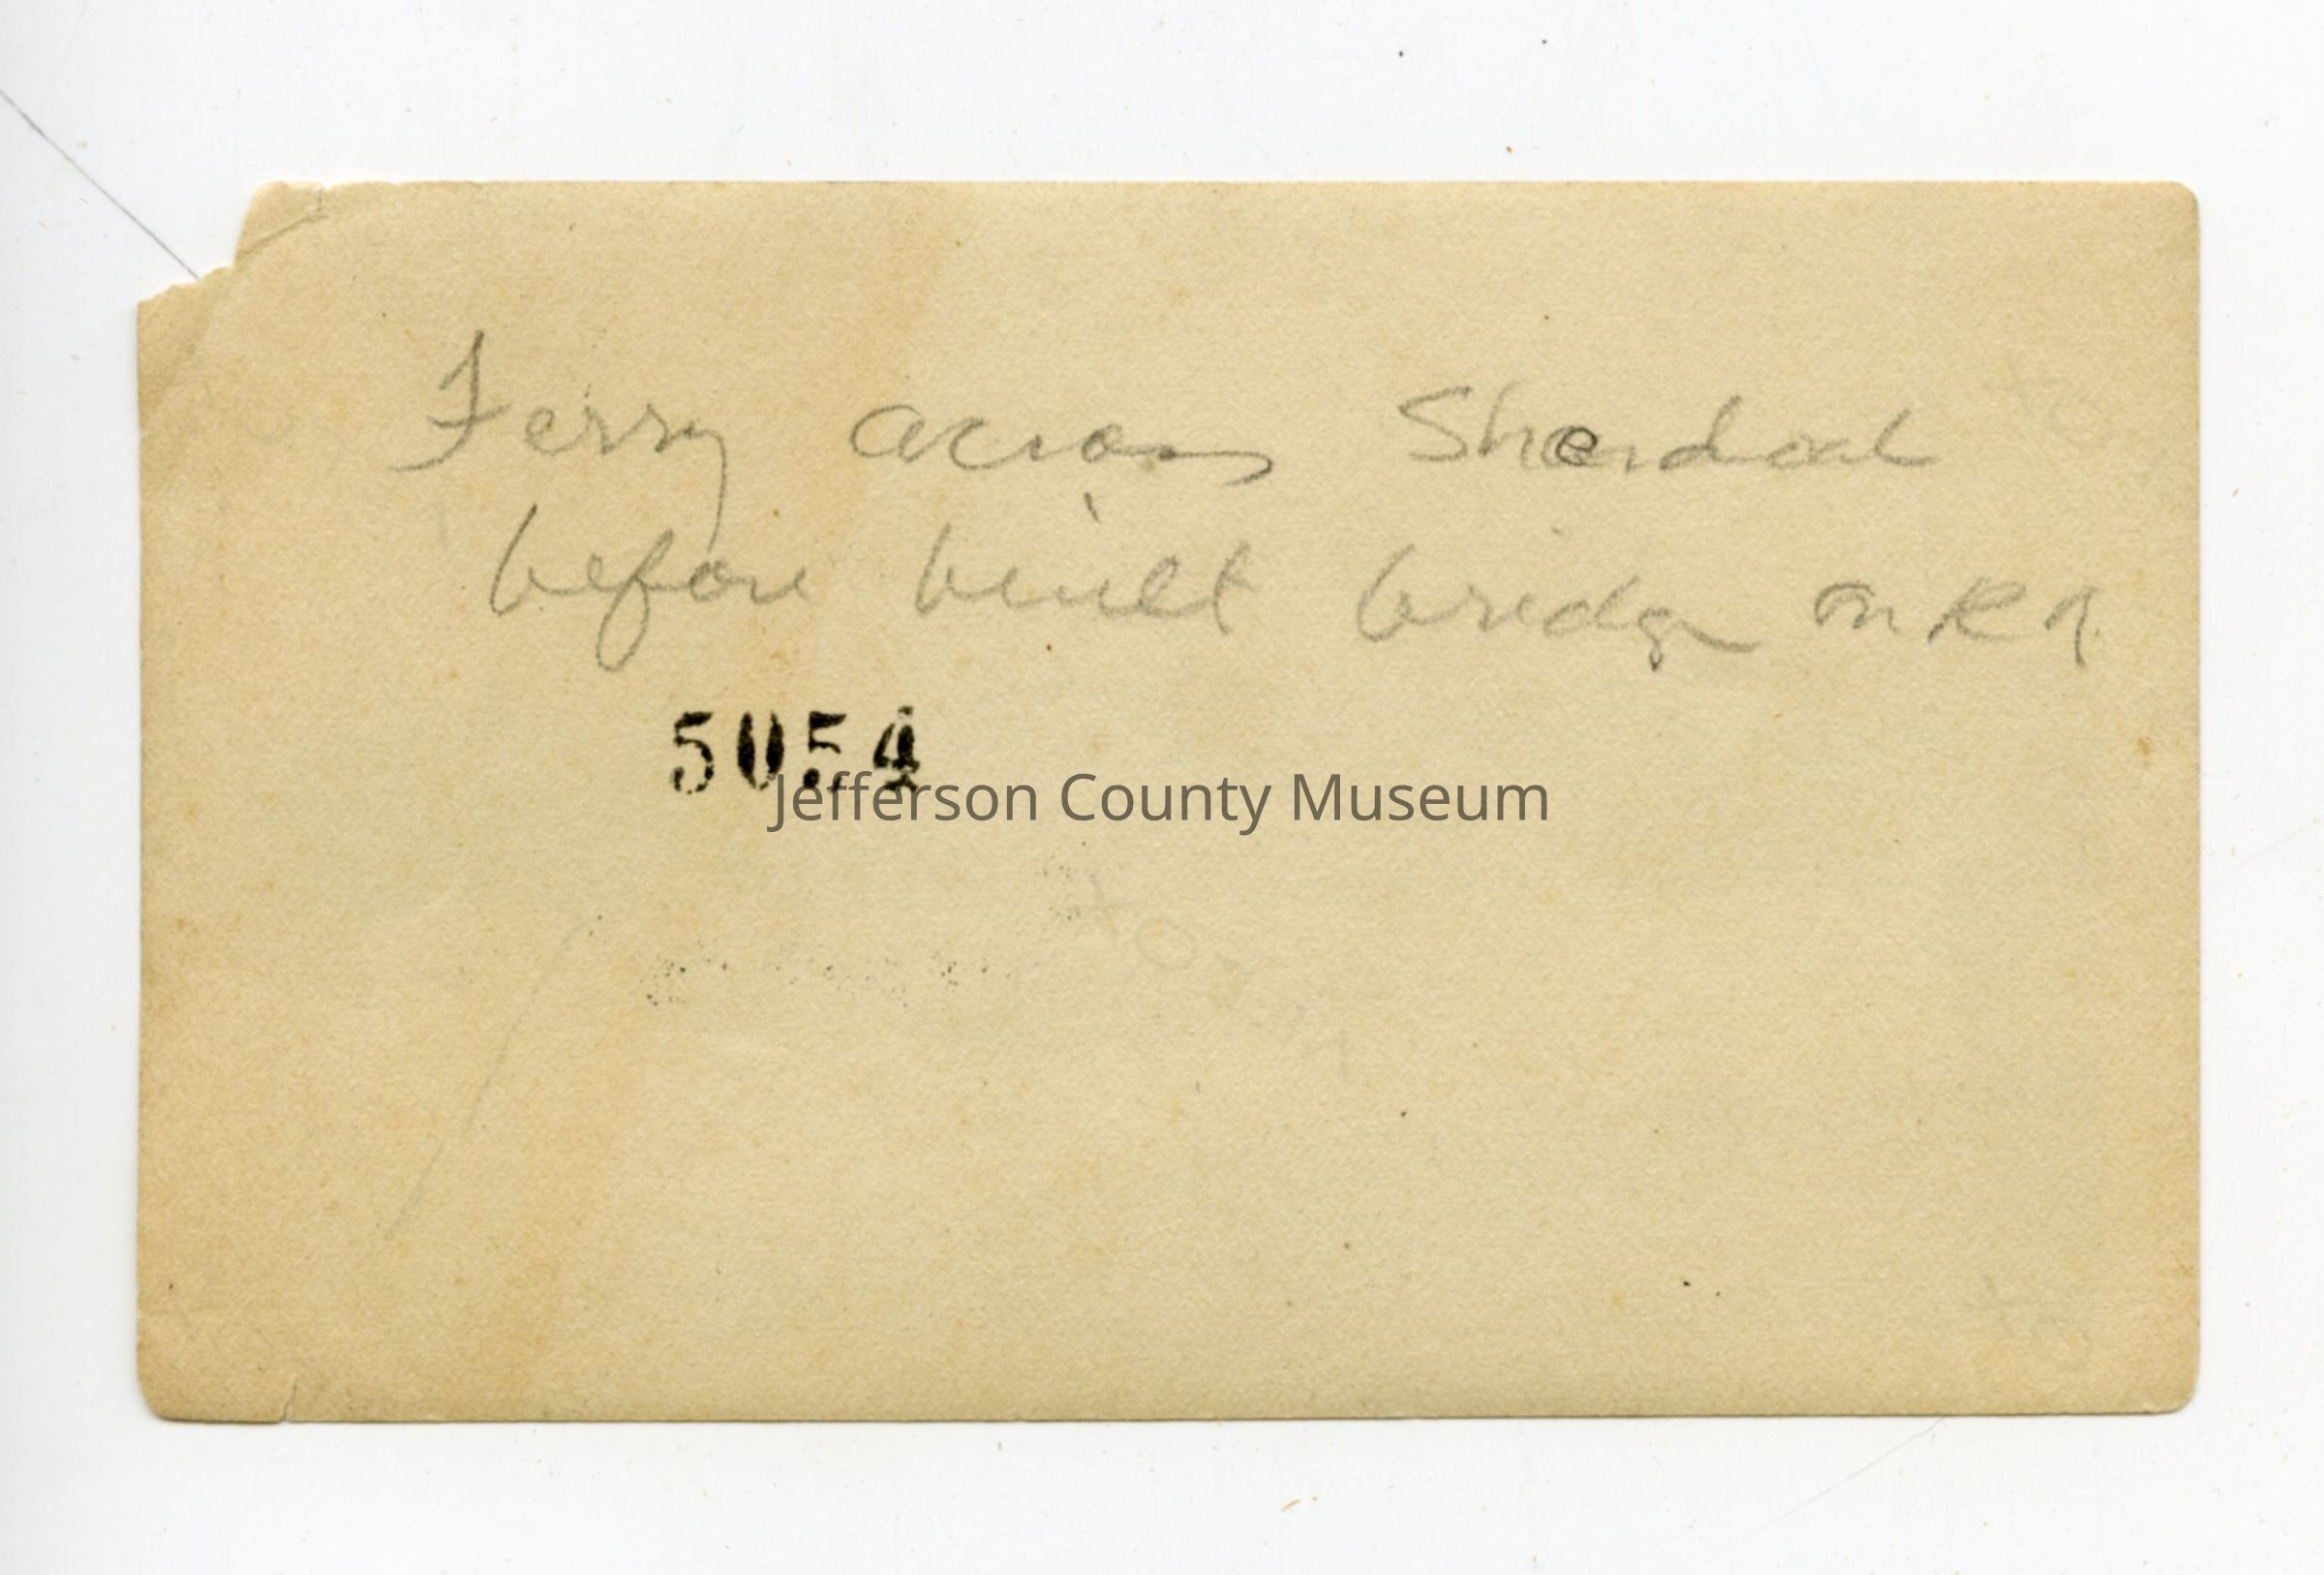 Ferry across Shendoah
before built bridge on R 9
5054
Jefferson County Museum